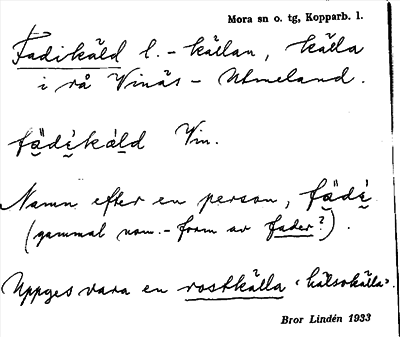 Mora sn o. tg, Kopparb. l.
Fadikäld l. -källan, källa
i rå Vinäs - Utmeland.
fädikäld Vin.
Namn efter en person, fädi
(gammal nom.-form av fader?).
Uppges vara en rostkälla "hälsokälla".
Bror Lindén 1933